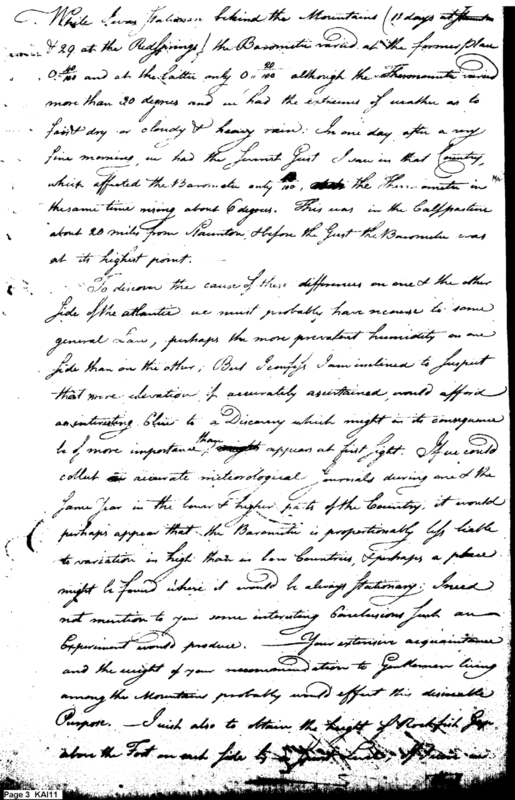 While I was Stationary behind the Mountains (11 days at
& 29 at the Red Springs) the Barometer varied at the former place
0 40/100 and at the latter only 0.. 20/100 although the Thermometer varied
more than 20 degrees and we had the extremes of weather as to
fair & dry or cloudy & heavy rain: In one day after a very
fine morning, we had the Gust I saw in that Country,
which affected the Barometer only the Thermometer in
the same time rising about 6 degrees. This was in the Calfpasture
about 20 miles from Staunton, & before the Gust the Barometer was
at its highest point.
To discover the cause of these differences on one & the other
side of the atlantic we must probably have recourse to some
general Law, perhaps the more prevalent humidity on one
side than on the other; But I confess I am inclined to suspect
that mere elevation if accurately ascertained, would afford
an interesting Clue to a Discovery which might in its consequence
be of more importance than appears at first sight. If we could
collect accurate meteorological Journals during one & the
same Year in the lower & higher parts of the Country, it would
perhaps appear that the Barometer is proportionally less liable
to variation in high than in low Countries, & perhaps a place
might be found where it would be always stationary; I need
not mention to you some interesting Conclusions such an
Experiment would produce. — Your extensive acquaintance
and the weight of your recommendation to Gentlemen living
among the Mountains probably would effect this desireable
Purpose. — I wish also to obtain the height of Rockfish Gap
above the Foot on each side by
Page 3 KAI11